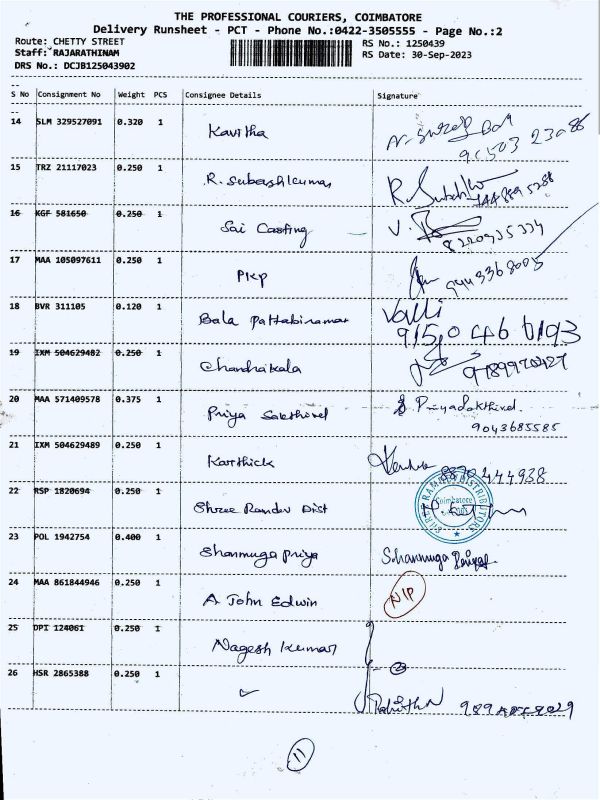 THE PROFESSIONAL COURIERS, COIMBATORE
Delivery Runsheet - PCT - Phone No.:0422-3505555 - Page No.:2
Route: CHETTY STREET RS No.: 1250439
Staff: RAJARATHINAM RS Date: 30-Sep-2023
DRS No.: DCJB125043902
S No Consignment No Weight PCS Consignee Details Signature
14 SLM 329527091 0.320 1 Kavitha
15 TRZ 21117023 0.250 1 R. Subashkumar
16 KGF 581650 0.250 1 Sai Casting
17 MAA 105097611 0.250 1 PKP 9443368005
18 BVR 311105 0.120 1 Bala Pattabiramar Valli
9150466193
19 IXM 504629482 0.250 1 Chandrakala
20 MAA 571409578 0.375 1 Priya Sakthivel PriyaSakthivel.
9043685585
21 IXM 504629489 0.250 1 Karthick 8870444938
22 RSP 1820694 0.250 1 Shree Ramdev Dist
Coimbatore
DISTRIBUTORS
23 POL 1942754 0.400 1 Shanmuga Priya Shanmuga
24 MAA 861844946 0.250 1 A John Edwin N/P
25 DPI 124061 0.250 1 Nagesh Kumar
26 HSR 2865388 0.250 1
11